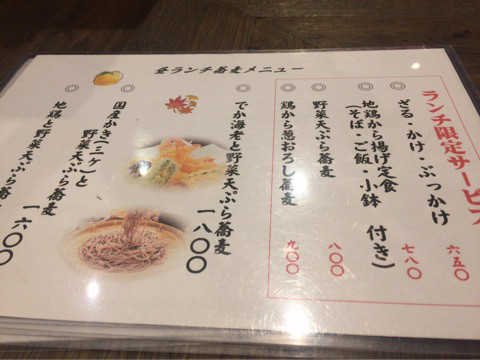 昼ランチ蕎麦メニュー
ランチ限定サービス
ざる・かけ・ぶっかけ
六五〇
地鶏から揚げ定食
(そば・ご飯・小鉢 付き)
七八〇
野菜天ぷら蕎麦
八〇〇
鶏から葱おろし蕎麦
九〇〇
でか海老と野菜天ぷら蕎麦
一八〇〇
国産かき(二ケ)と
野菜天ぷら蕎麦
一六〇〇
地鶏と野菜天ぷら蕎